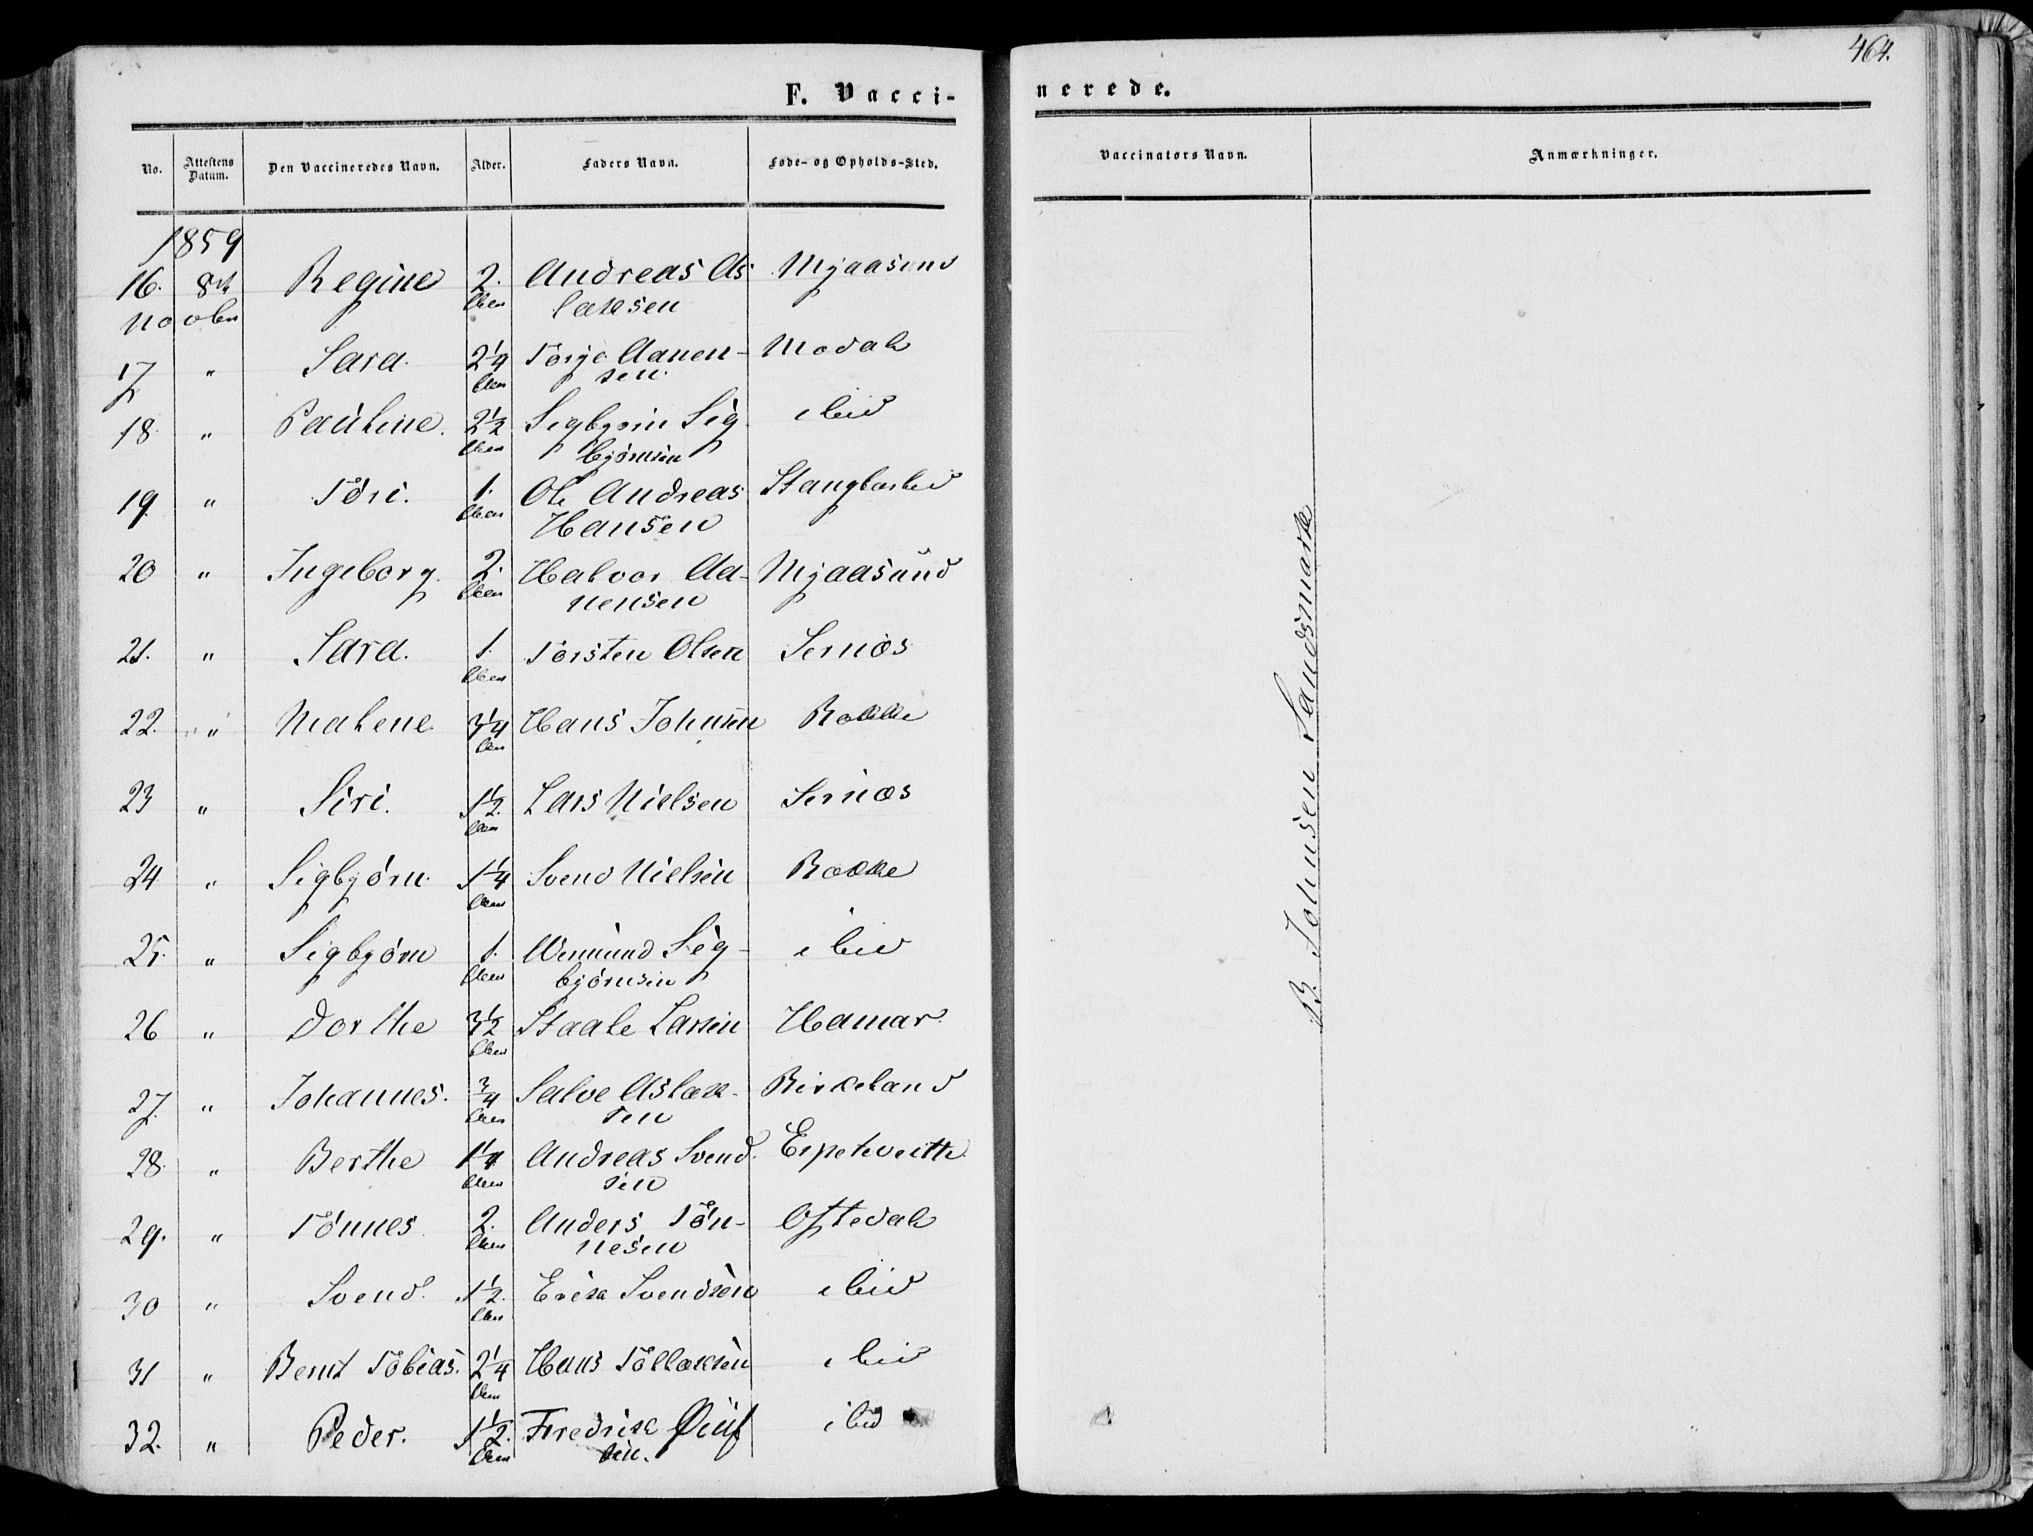 464.
F. Vaccinerede.
No. Attestens Datum. Den Vaccineredes Navn. Alder. Faders Navn. Føde- og Opholds-Sted. Vaccinators Navn. Anmærkninger.
1859
16. 8de Novbr Regine 2. Andreas Aslaksen Mjaasund
17 " Sara. 2 1/4 Torje Aanensen. Modal
18 " Pauline. 2 1/2 Sigbjørn Sigbjørnsen ibid
19. " Töri. 1. Ole Andreas Hansen
20 " Ingeborg. 2. Halvor Aanensen Mjaasund
21. " Sara. 1. Torsten Olsen Sernæs
22. " Malene 3 1/4 Hans Johnsen Røkke
23 " Siri. 1 1/2. Lars Nielsen Sernæs
24 " Sigbjørn. 1 1/4 Svend Nielsen Røkke
25. " Sigbjørn 1. Wemund Sigbjørnsen ibid
26 " Dorthe 3 1/2 Staale Larsen Hamar.
27. " Johannes. 3/4 Salve Aslaksen Birkeland
28. " Berthe 1 1/4 Andreas Svendsen
29. " Tönnes 2. Anders Tönnesen Oftedal
30 " Svend. 1 1/2. Erik Svendsen ibid
31 " Bernt Tobias. 2 1/4 Hans Tollaksen ibid
32. " Peder. 1 1/2. Fredrik ibid
B. Johnsen Landsmark